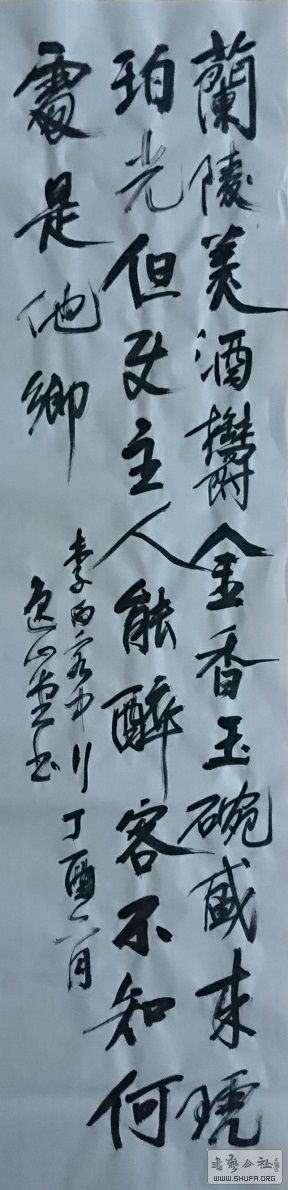 蘭陵美酒欝金香玉碗盛来琥
珀光但使主人能醉客不知何
處是他鄉
李白客中行 丁酉六月
逸山堂书
书艺公社
WWW.SHUFA.ORG